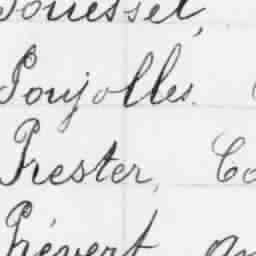 Pouesset,
Poujolles.
Prester, Co
Prévert An